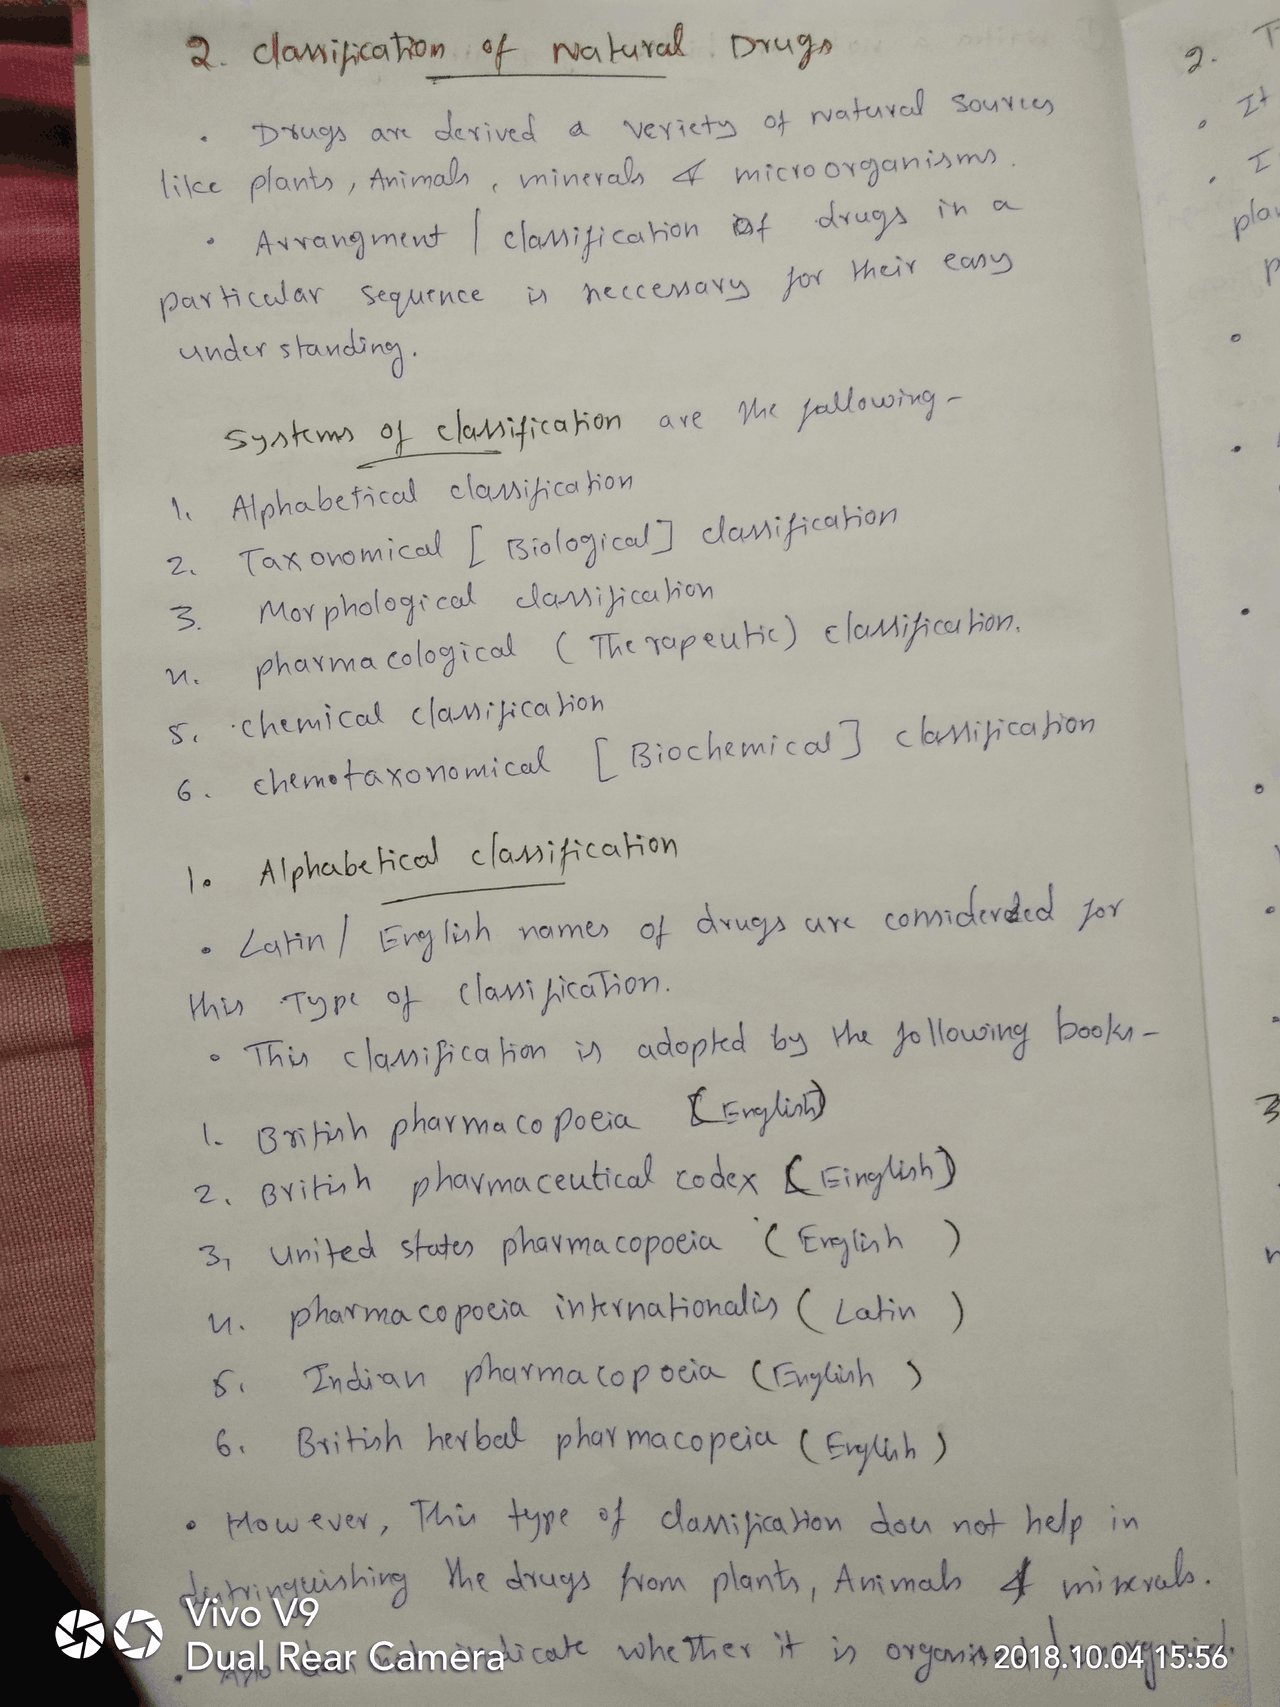 2. Classification of Natural Drugs
• Drugs are derived a veriety of natural sources
like plants, Animals, minerals & microorganisms.
• Arrangment / classification of drugs in a
particular sequence is neccessary for their easy
understanding.
Systems of classification are the following-
1. Alphabetical classification
2. Taxonomical [Biological] classification
3. Morphological classification
4. pharmacological (Therapeutic) classification.
5. chemical classification
6. chemotaxonomical [Biochemical] classification
1. Alphabetical classification
• Latin / English names of drugs are considered for
this Type of classification.
• This classification is adopted by the following books-
1. British pharmacopoeia (English)
2. British pharmaceutical codex (Einglish)
3, United states pharmacopoeia (English)
4. pharmacopoeia internationalis (Latin)
5. Indian pharmacopoeia (English)
6. British herbal pharmacopeia (English)
• However, This type of classification does not help in
distringuishing the drugs from plants, Animals & minerals.
• Also does not indicate whether it is
Vivo V9
Dual Rear Camera
2018.10.04 15:56
2. T
• It
• I
pla
p
3